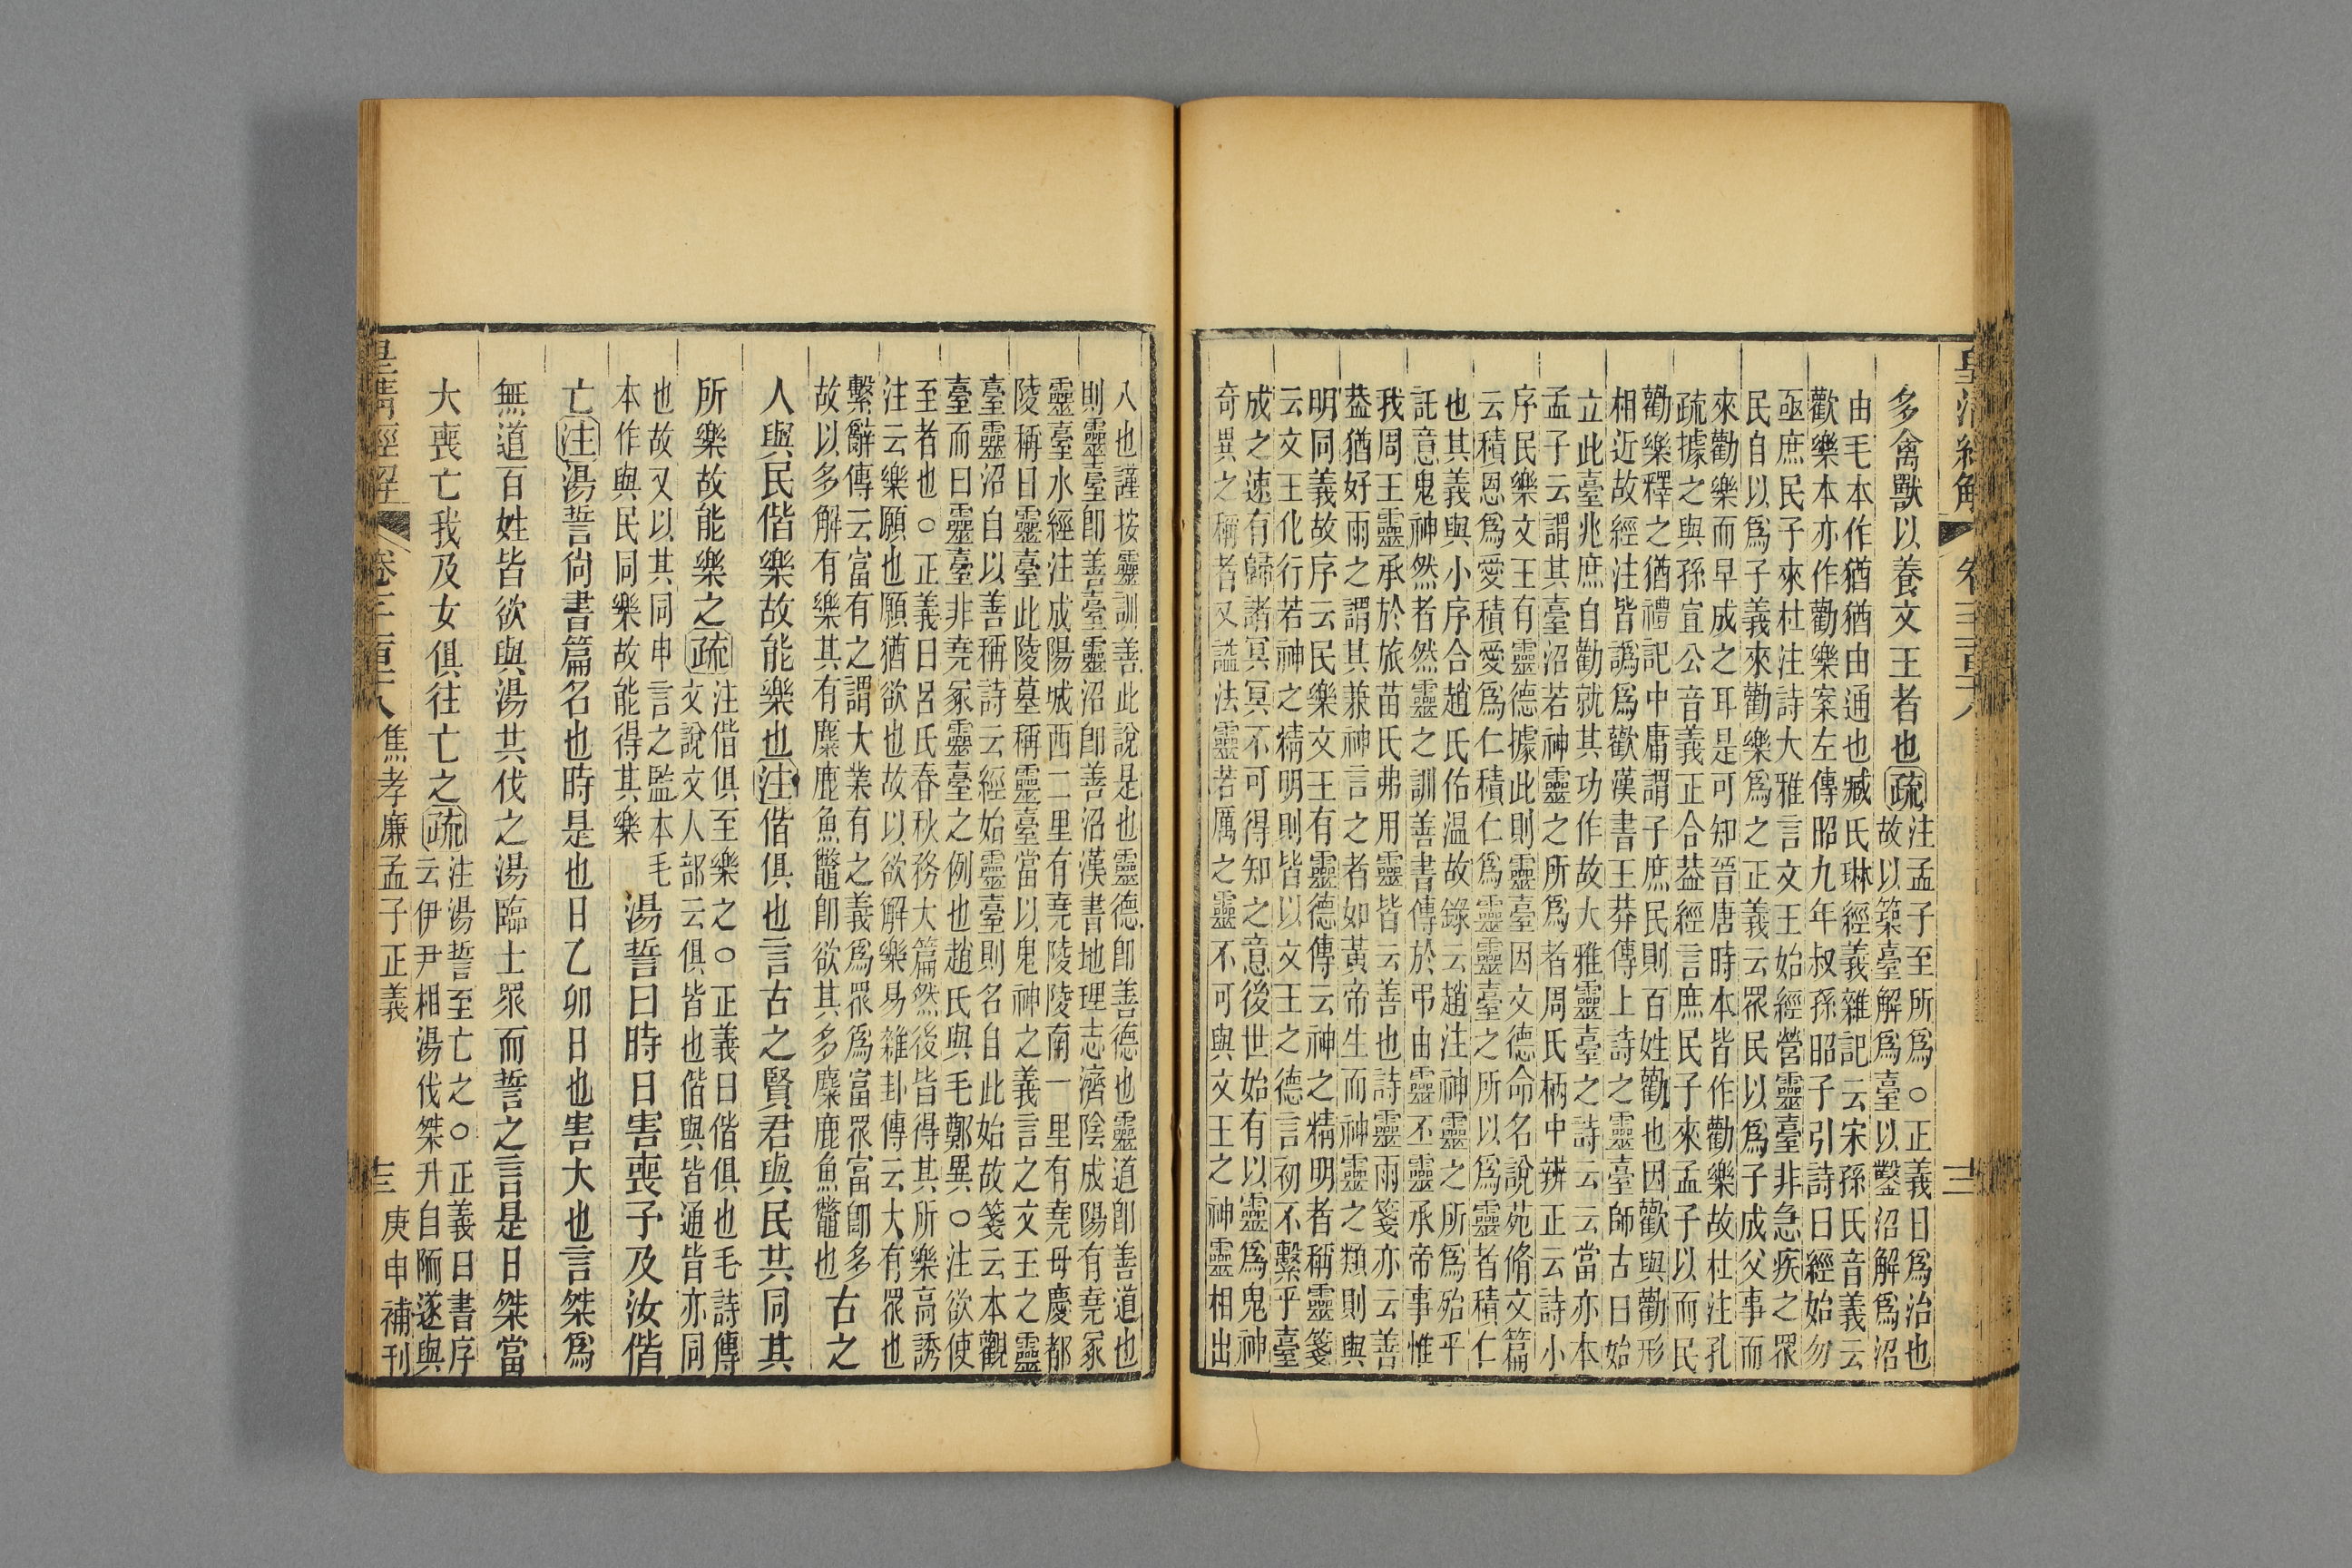 皇清經解
卷
十二
多禽獸以養文王者也疏
注孟子至所爲○正義曰爲治也
故以築臺解爲臺以鑿沼解爲沼
由毛本作猶猶由通也臧氏琳經義雜記云宋孫氏音義云
歡樂本亦作勸樂案左傳昭九年叔孫昭子引詩曰經始勿
亟庶民子來杜注詩大雅言文王始經營靈臺非急疾之眾
民自以爲子義來勸樂爲之正義云眾民以爲子成父事而
來勸樂而早成之耳是可知晉唐時本皆作勸樂故杜注孔
疏據之與孫宣公音義正合葢經言庶民子來孟子以而民
勸樂釋之猶禮記中庸謂子庶民則百姓勸也因歡與勸形
相近故經注皆譌爲歡漢書王莽傳上詩之靈臺師古曰始
立此臺兆庶自勸就其功作故大雅靈臺之詩云云當亦本
孟子云謂其臺沼若神靈之所爲者周氏柄中辨正云詩小
序民樂文王有靈德據此則靈臺因文德命名說苑脩文篇
云積恩爲愛積愛爲仁積仁爲靈靈臺之所以爲靈者積仁
也其義與小序合趙氏佑温故錄云趙注神靈之所爲殆平
託意鬼神然者然靈之訓善書傳於弔由靈丕靈承帝事惟
我周王靈承於旅苗民弗用靈皆云善也詩靈雨箋亦云善
葢猶好雨之謂其兼神言之者如黃帝生而神靈之類則與
明同義故序云民樂文王有靈德傳云神之精明者稱靈箋
云文王化行若神之精明則皆以文王之德言初不繫乎臺
成之速有歸諸冥冥不可得知之意後世始有以靈爲鬼神
奇異之稱者又謚法靈若厲之靈不可與文王之神靈相出
入也謹按靈訓善此說是也靈德卽善德也靈道卽善道也
則靈臺卽善臺靈沼卽善沼漢書地理志濟陰成陽有堯冢
靈臺水經注成陽城西二里有堯陵陵南一里有堯母慶都
陵稱曰靈臺此陵墓稱靈臺當以鬼神之義言之文王之靈
臺靈沼自以善稱詩云經始靈臺則名自此始故箋云本觀
臺而曰靈臺非堯冢靈臺之例也趙氏與毛鄭異○注欲使
至者也○正義曰呂氏春秋務大篇然後皆得其所樂高誘
注云樂願也願猶欲也故以欲解樂易雜卦傳云大有眾也
繫辭傳云富有之謂大業有之義爲眾爲富眾富卽多
故以多解有樂其有麋鹿魚鼈卽欲其多麋鹿魚鼈也
古之
人與民偕樂故能樂也注偕俱也言古之賢君與民共同其
所樂故能樂之疏
注偕俱至樂之○正義曰偕俱也毛詩傳
文說文人部云俱皆也偕與皆通皆亦同
也故又以其同申言之監本毛
本作與民同樂故能得其樂
湯誓曰時日害喪予及汝偕
亡注湯誓尙書篇名也時是也日乙卯日也害大也言桀爲
無道百姓皆欲與湯共伐之湯臨士眾而誓之言是日桀當
大喪亡我及女俱往亡之疏
注湯誓至亡之○正義曰書序
云伊尹相湯伐桀升自陑遂與
皇清經解
焦孝廉孟子正義
庚申補刊